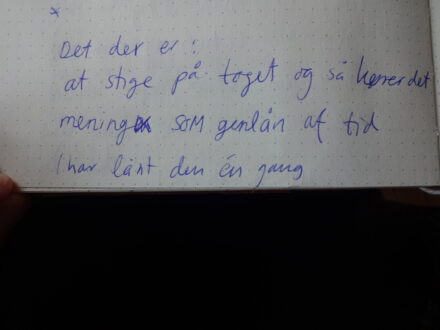 Det der er :
at stige på toget og så kører det
mening som genlån af tid
I har lånt den én gang